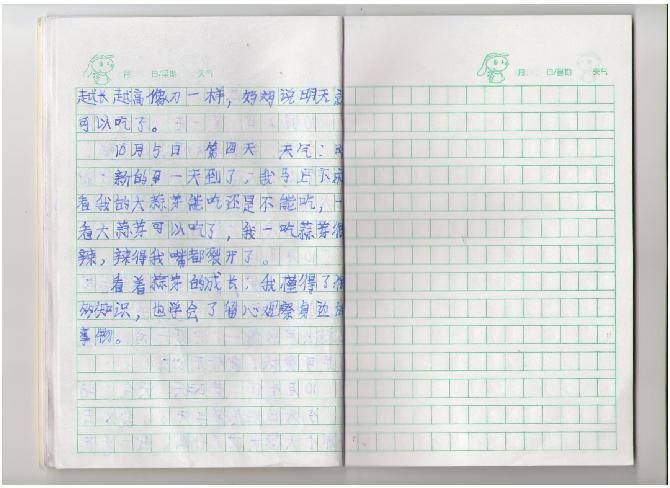 月 日/星期 天气
越长越高像刀一样，妈妈说明天
可以吃了。
10月5日 第四天 天气：
新的一天到了，我马上下床
看我的大蒜芽能吃还是不能吃，一
看大蒜芽可以吃了，我一吃蒜芽很
辣，辣得我嘴都裂开了。
看着蒜芽的成长，我懂得了
的知识，也学会了留心观察身边的
事物。
月 日/星期 天气